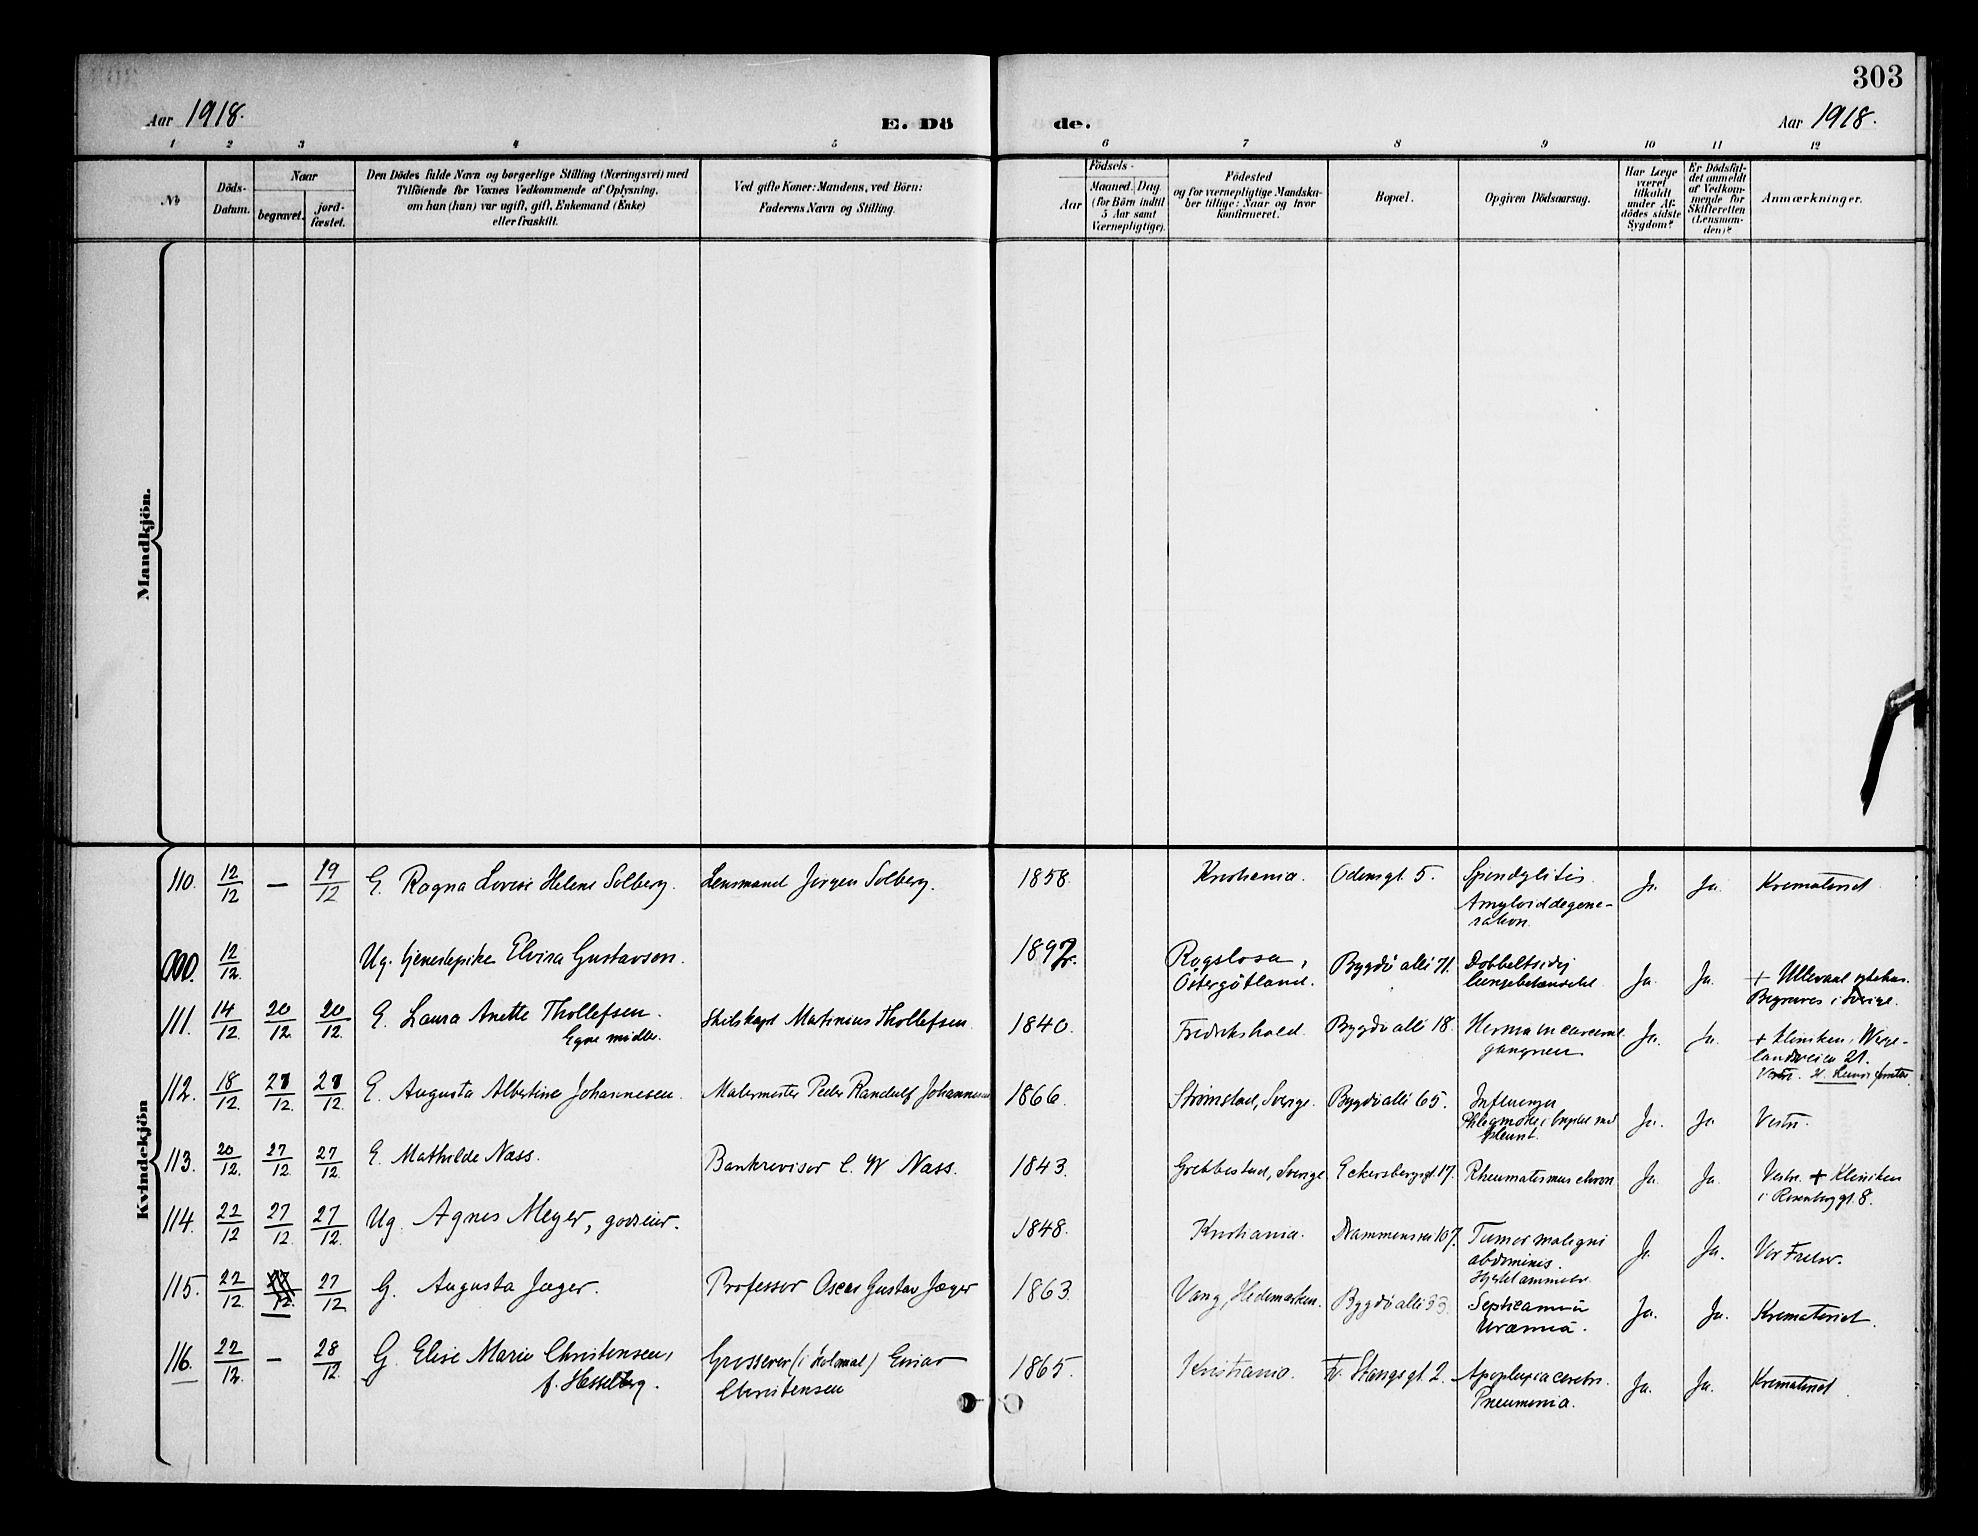 303
Aar 1918. E. Dö de. Aar 1918.
1 2 3 4 5 6 7 8 9 10 11 12
No
Döds-
Datum.
Naar
begravet.
jord-
fæstet.
Den Dödes fulde Navn og borgerlige Stilling (Næringsvei) med
Tilföiende for Voxnes Vedkommende af Oplysning,
om han (hun) var ugift, gift, Enkemand (Enke)
eller fraskilt.
Ved gifte Koner: Mandens, ved Börn:
Faderens Navn og Stilling.
Födsels-
Aar
Maaned. Dag
(for Börn indtil
5 Aar samt
Værnepligtige).
Födested
og for værnepligtige Mandska-
ber tillige: Naar og hvor
konfirmeret.
Bopæl.
Opgiven Dödsaarsag.
Har Læge
været
tilkaldt
under Af-
dödes sidste
Sygdom?
Er Dödsfal-
det anmeldt
af Vedkom-
mende for
Skifteretten
(Lensman-
den)?
Anmærkninger.
Mandkjön.
Kvindekjön
110. 12/12 — 19/12 E. Ragna Lovise Helene Solberg. Lensmand Jørgen Solberg. 1858. Kristiania. Odensgt. 5. Spondylitis. Ja. Ja. Krematoriet
Amyloiddegene-
ration.
000. 12/12. Ug. tjenestepike Elvira Gustavson. 1897. Rogslosa, Bygdø allé 71. Dobbeltsidig Ja. Ja. + Ullevaal sykehus.
Östergötland. lungebetændelse. Begraves i Sverige.
111. 14/12. 20/12. 20/12. E. Laura Anette Thollefsen. Skibskapt Matinius Thollefsen. 1840. Fredrikshald. Bygdø allé 18. Hernia incarcerat Ja. Ja. + Kliniken, Werge-
Egne midler. gangren landsveien 21.
Vestre.
112. 18/12. 27/12. 27/12. E. Augusta Albertine Johannesen. Malermester Peder Randulf Johannesen 1866. Strømstad, Sverige. Bygdø allé 65. Influenza Ja. Ja Vestre.
113. 20/12. 27/12. 27/12. E. Mathilde Næss. Bankrevisor C. W Næss. 1843. Grebbestad, Sverige Eckersbergsgt. 17. Rheumatismus chron. Ja. Ja. Vestre. + Kliniken
i Rosenborggt. 8.
114. 22/12 27/12. 27/12. Ug. Agnes Meyer, godseier. 1848. Kristiania. Drammensvn 107. Tumor maligni Ja Ja. Vor Frelser.
abdominis.
Hjertelammelse.
115. 22/12. 27/12. 27/12 G. Augusta Jæger. Professor Oscar Gustav Jæger 1863. Vang, Hedemarken. Bygdø allé 33. Septicæmia Ja. Ja. Krematoriet.
Uræmia.
116. 22/12. — 28/12. G. Elise Marie Christensen, Grosserer (i kolonial) Einar 1865. Kristiania. Fr. Stangsgt. 2. Apoplexia cerebri. Ja. Ja. Krematoriet.
f. Hesselberg. Christensen Pneumonia.